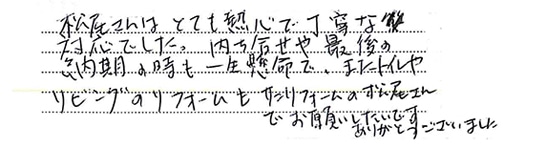 松尾さんは とても熱心で丁寧な
対応でした。内う合せや最後の
納期の時も一生懸命で、またトイレや
リビングのリフォームもサンリフォームの松尾さん
でお願いしたいです
ありがとうございました